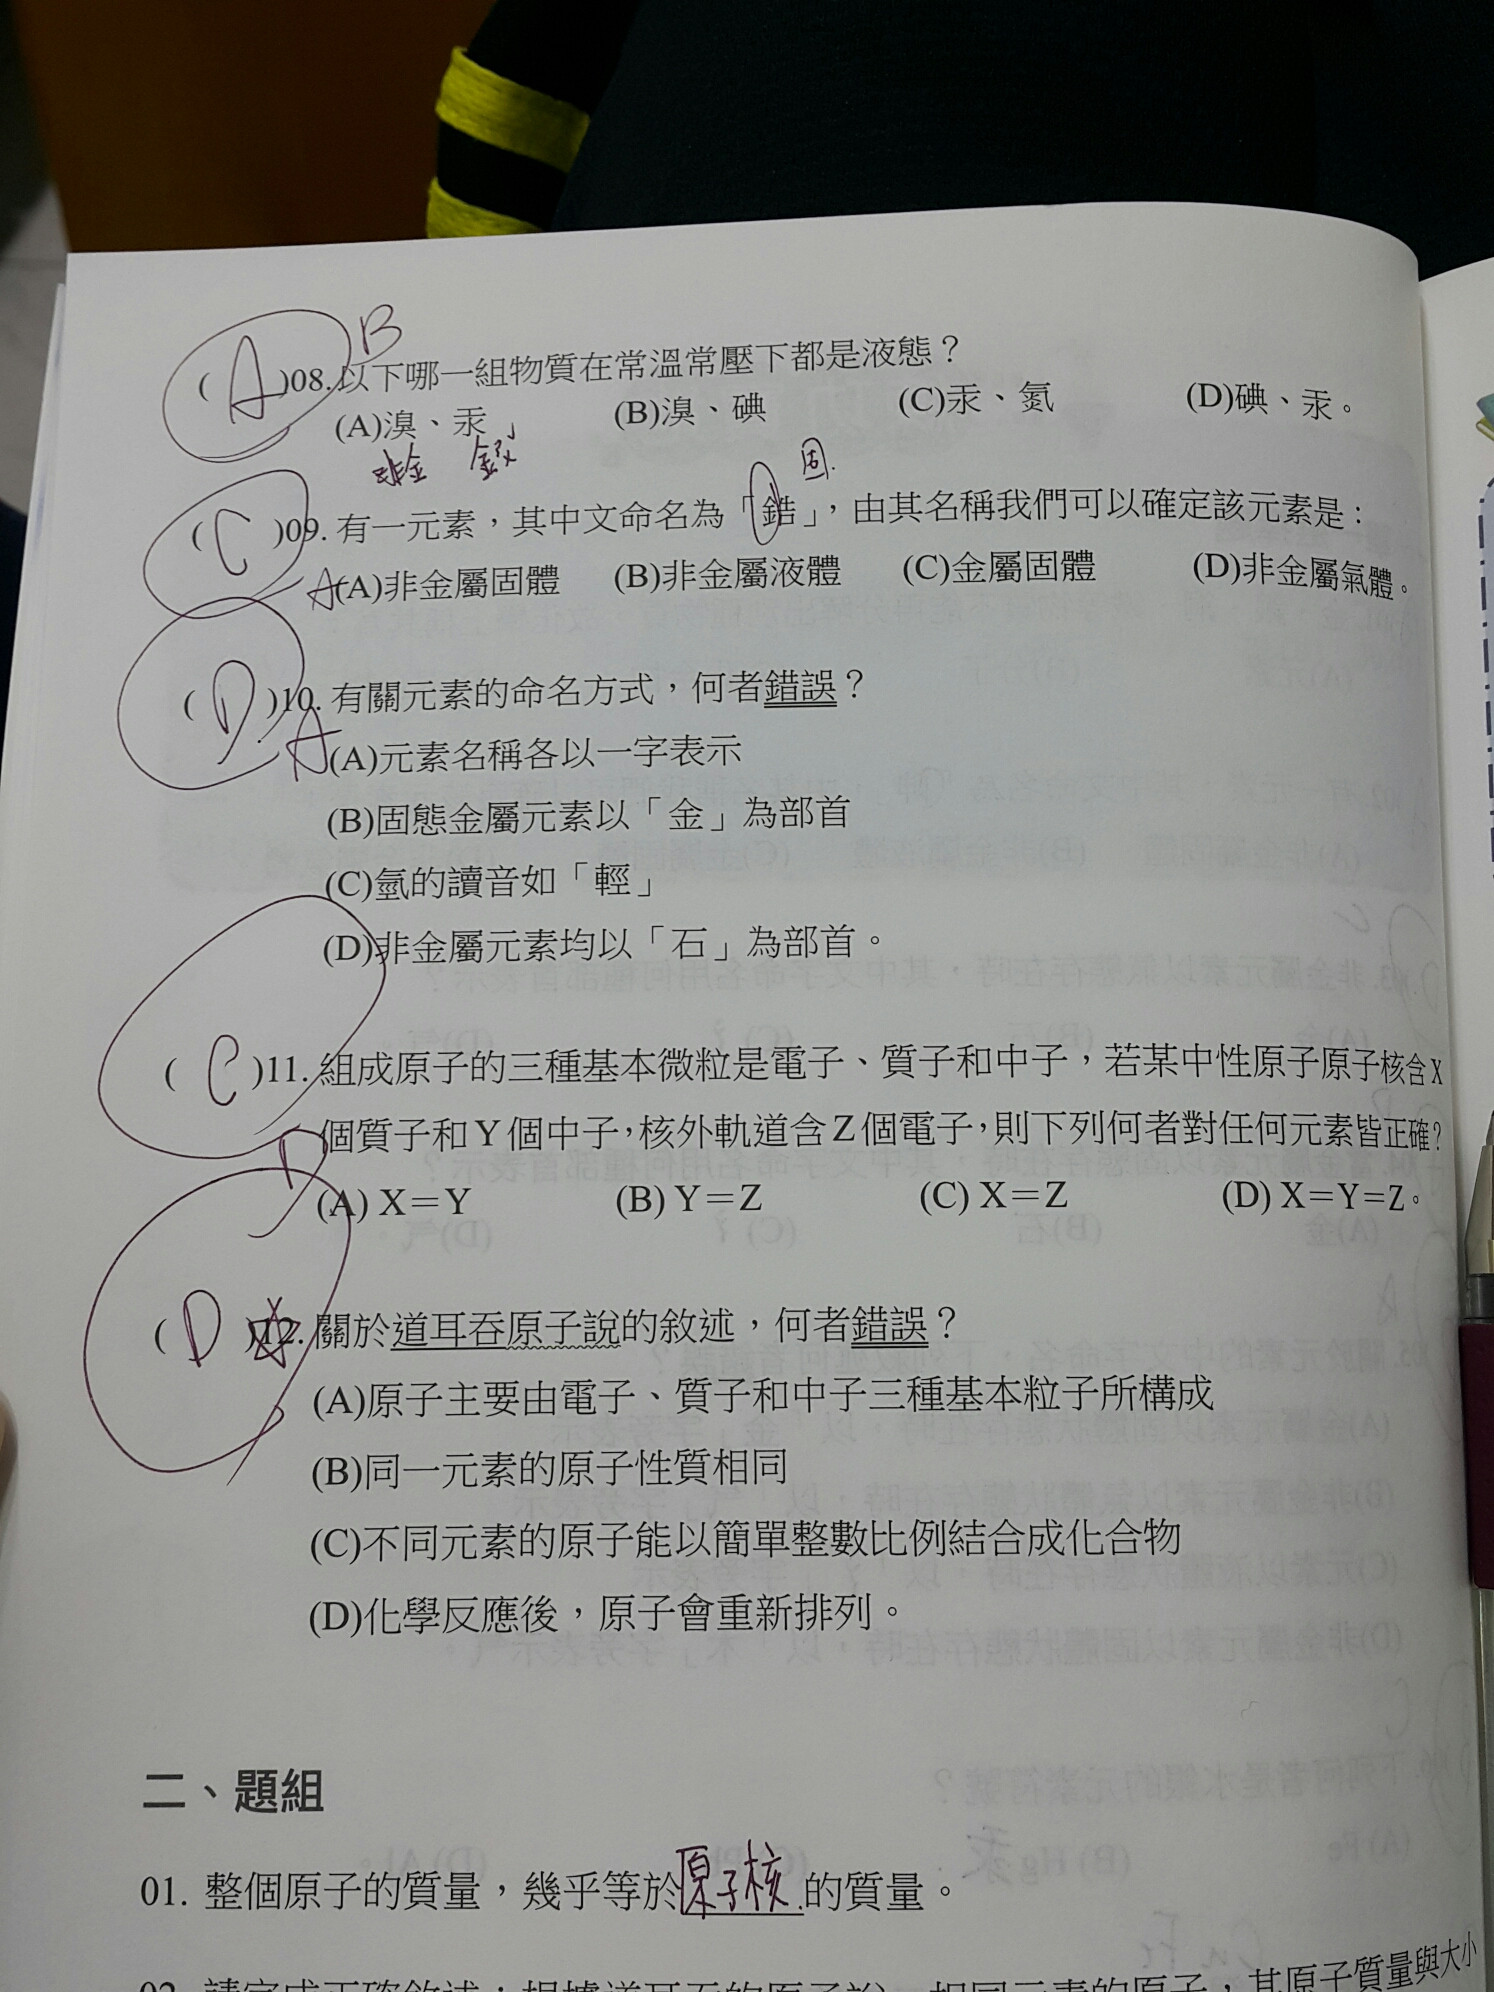 B
( A )08.以下哪一組物質在常溫常壓下都是液態？
(A)溴、汞 (B)溴、碘 (C)汞、氮 (D)碘、汞。
非金 金汞 固
( C )09. 有一元素，其中文命名為「鋯」，由其名稱我們可以確定該元素是：
A (A)非金屬固體 (B)非金屬液體 (C)金屬固體 (D)非金屬氣體。
( D )10. 有關元素的命名方式，何者錯誤？
A (A)元素名稱各以一字表示
(B)固態金屬元素以「金」為部首
(C)氫的讀音如「輕」
(D)非金屬元素均以「石」為部首。
( C )11. 組成原子的三種基本微粒是電子、質子和中子，若某中性原子原子核含X
個質子和Y個中子，核外軌道含Z個電子，則下列何者對任何元素皆正確？
D
(A) X＝Y (B) Y＝Z (C) X＝Z (D) X=Y=Z。
( D )12. 關於道耳吞原子說的敘述，何者錯誤？
(A)原子主要由電子、質子和中子三種基本粒子所構成
(B)同一元素的原子性質相同
(C)不同元素的原子能以簡單整數比例結合成化合物
(D)化學反應後，原子會重新排列。
二、題組
01. 整個原子的質量，幾乎等於原子核的質量。
02. 請完成正確敘述：根據道耳吞的原子說，相同元素的原子，其原子質量與大小